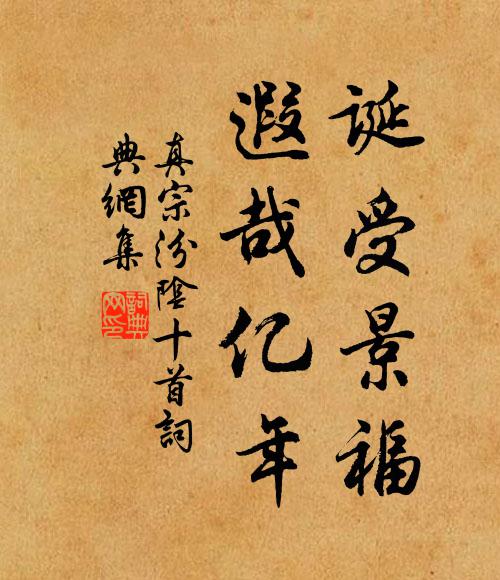 诞受景福
遐哉亿年
真宗汾陰十首詞
典網集
詞典網印